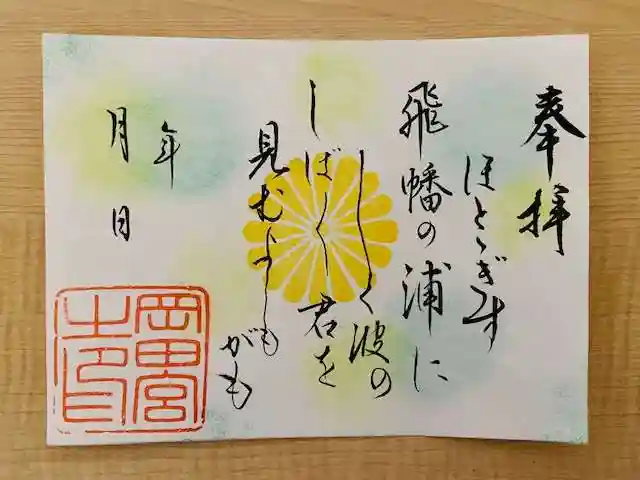 奉拝
ほとゝぎす
飛幡の浦に
しく波の
しば〱君を
見むよしも
がも
年
月 日
岡田宮
之印